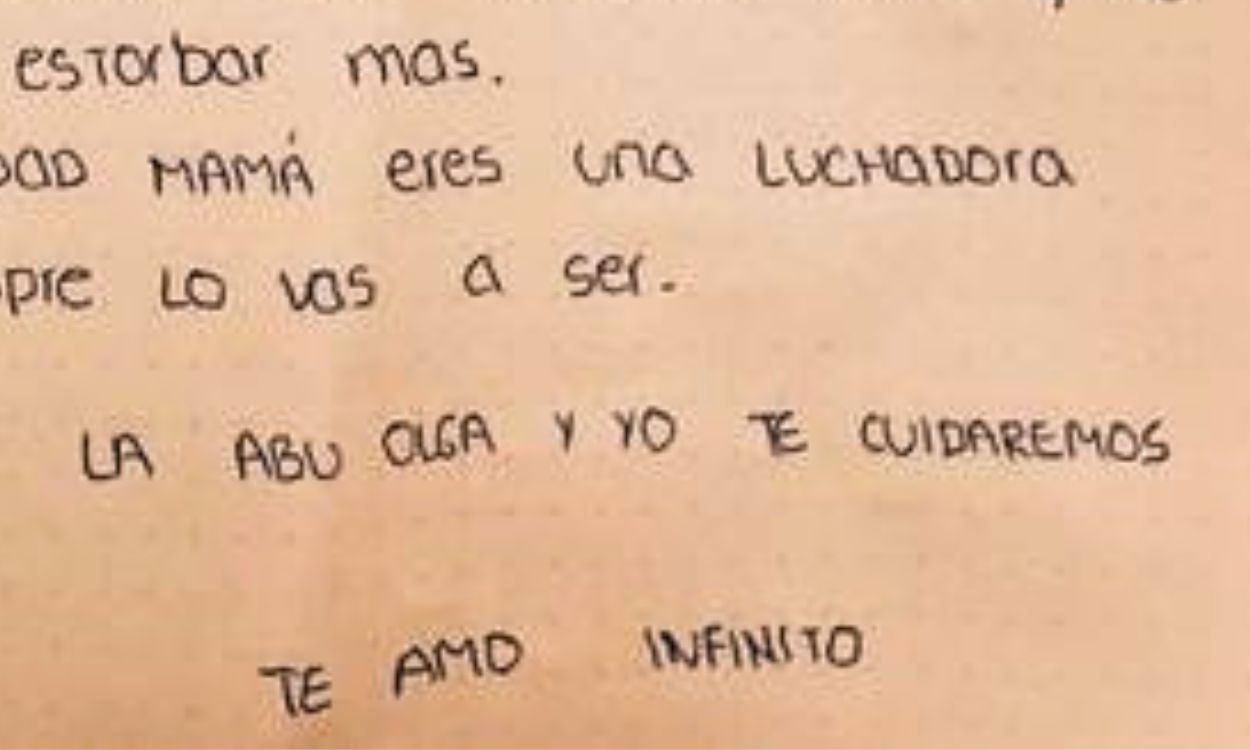 estorbar mas.
MAMÁ eres una LUCHADOra
LO vas a ser.
LA ABU OLGA Y YO TE CUIDAREMOS
TE AMO INFINITO